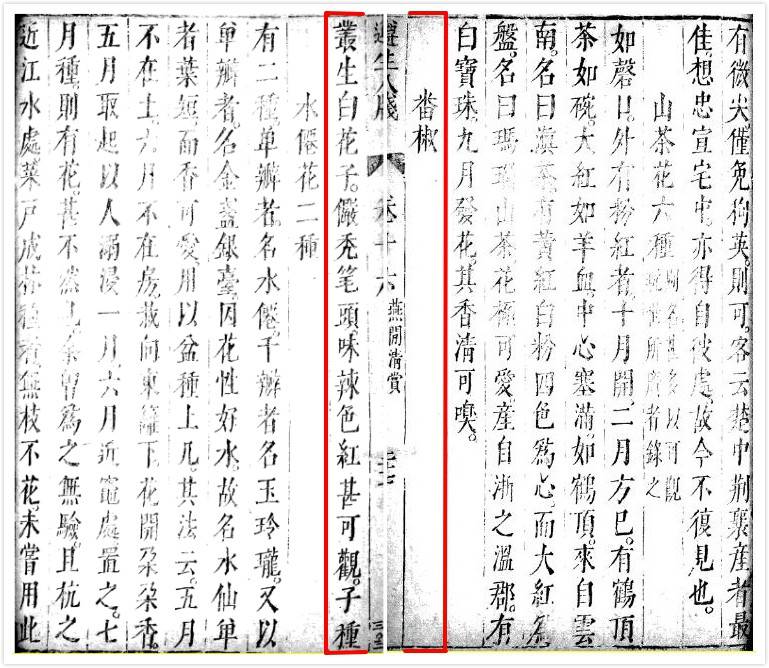 有微尖僅免狗英。則可。客云楚中荆襄產者最
佳。想忠宣宅中。亦得自彼處。故今不復見也。
山茶花六種
如磬口。外有粉紅者。十月開。二月方巳。有鶴頂
茶如碗。大紅如羊血。中心塞滿。如鶴頂。來自雲
南。名曰滇茶。有黃紅白粉四色爲心。而大紅爲
盤。名曰瑪瑙山茶。花極可愛。產自浙之溫郡。有
白寶珠。九月發花。其香清可嗅。
番椒
遵生八牋 卷十六 燕閒清賞
叢生白花。子儼禿笔頭。味辣色紅。甚可觀。子種
水僊花二種
有二種。單瓣者。名水僊。千瓣者名玉玲瓏。又以
單瓣者。名金盞銀臺。因花性好水。故名水仙。單
者葉短。而香可愛。用以盆種上几。其法云。五月
不在土。六月不在房。栽向東籬下。花開朶朶香。
五月取起。以人溺浸一月。六月近竈處置之。七
月種。則有花。甚不然也。余曾爲之無驗。且杭之
近江水處。菜戶成林種者。無枝不花。未嘗用此